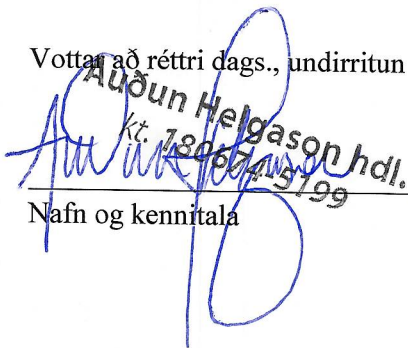 Vottar að réttri dags., undirritun
Auðun Helgason hdl.
kt. 180674-5199
Nafn og kennitala